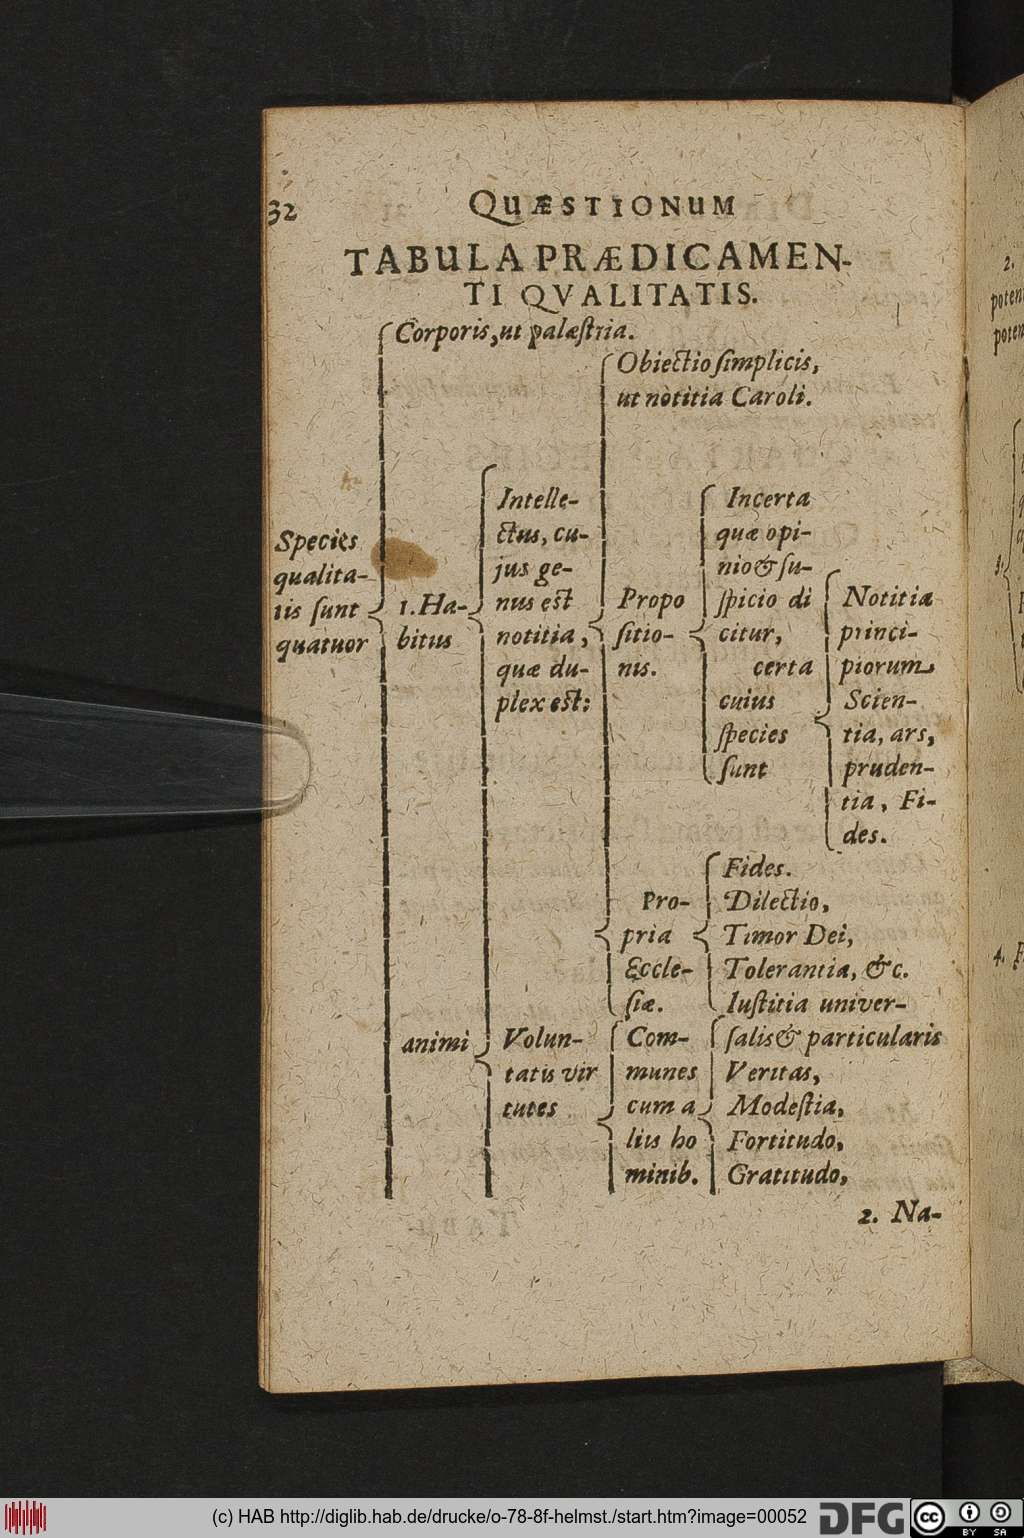 32
QUÆSTIONUM
TABULA PRÆDICAMEN-
TI QVALITATIS.
Species
qualita-
tis sunt
quatuor
1. Ha-
bitus
Corporis, ut palæstria.
animi
Intelle-
ctus, cu-
jus ge-
nus est
notitia,
quæ du-
plex est:
Obiectio simplicis,
ut notitia Caroli.
Propo
sitio-
nis.
Incerta
quæ opi-
nio & su-
spicio di
citur,
certa
cuius
species
sunt
Notitiæ
princi-
piorum,
Scien-
tia, ars,
pruden-
tia, Fi-
des.
Volun-
tatis vir
tutes
Pro-
pria
Eccle-
siæ.
Fides.
Dilectio,
Timor Dei,
Tolerantia, &c.
Com-
munes
cum a
liis ho
minib.
Iustitia univer-
salis & particularis
Veritas,
Modestia,
Fortitudo,
Gratitudo,
2. Na-
2.
poten
poten
3.
4.
(c) HAB http://diglib.hab.de/drucke/o-78-8f-helmst./start.htm?image=00052
DFG
cc
BY SA